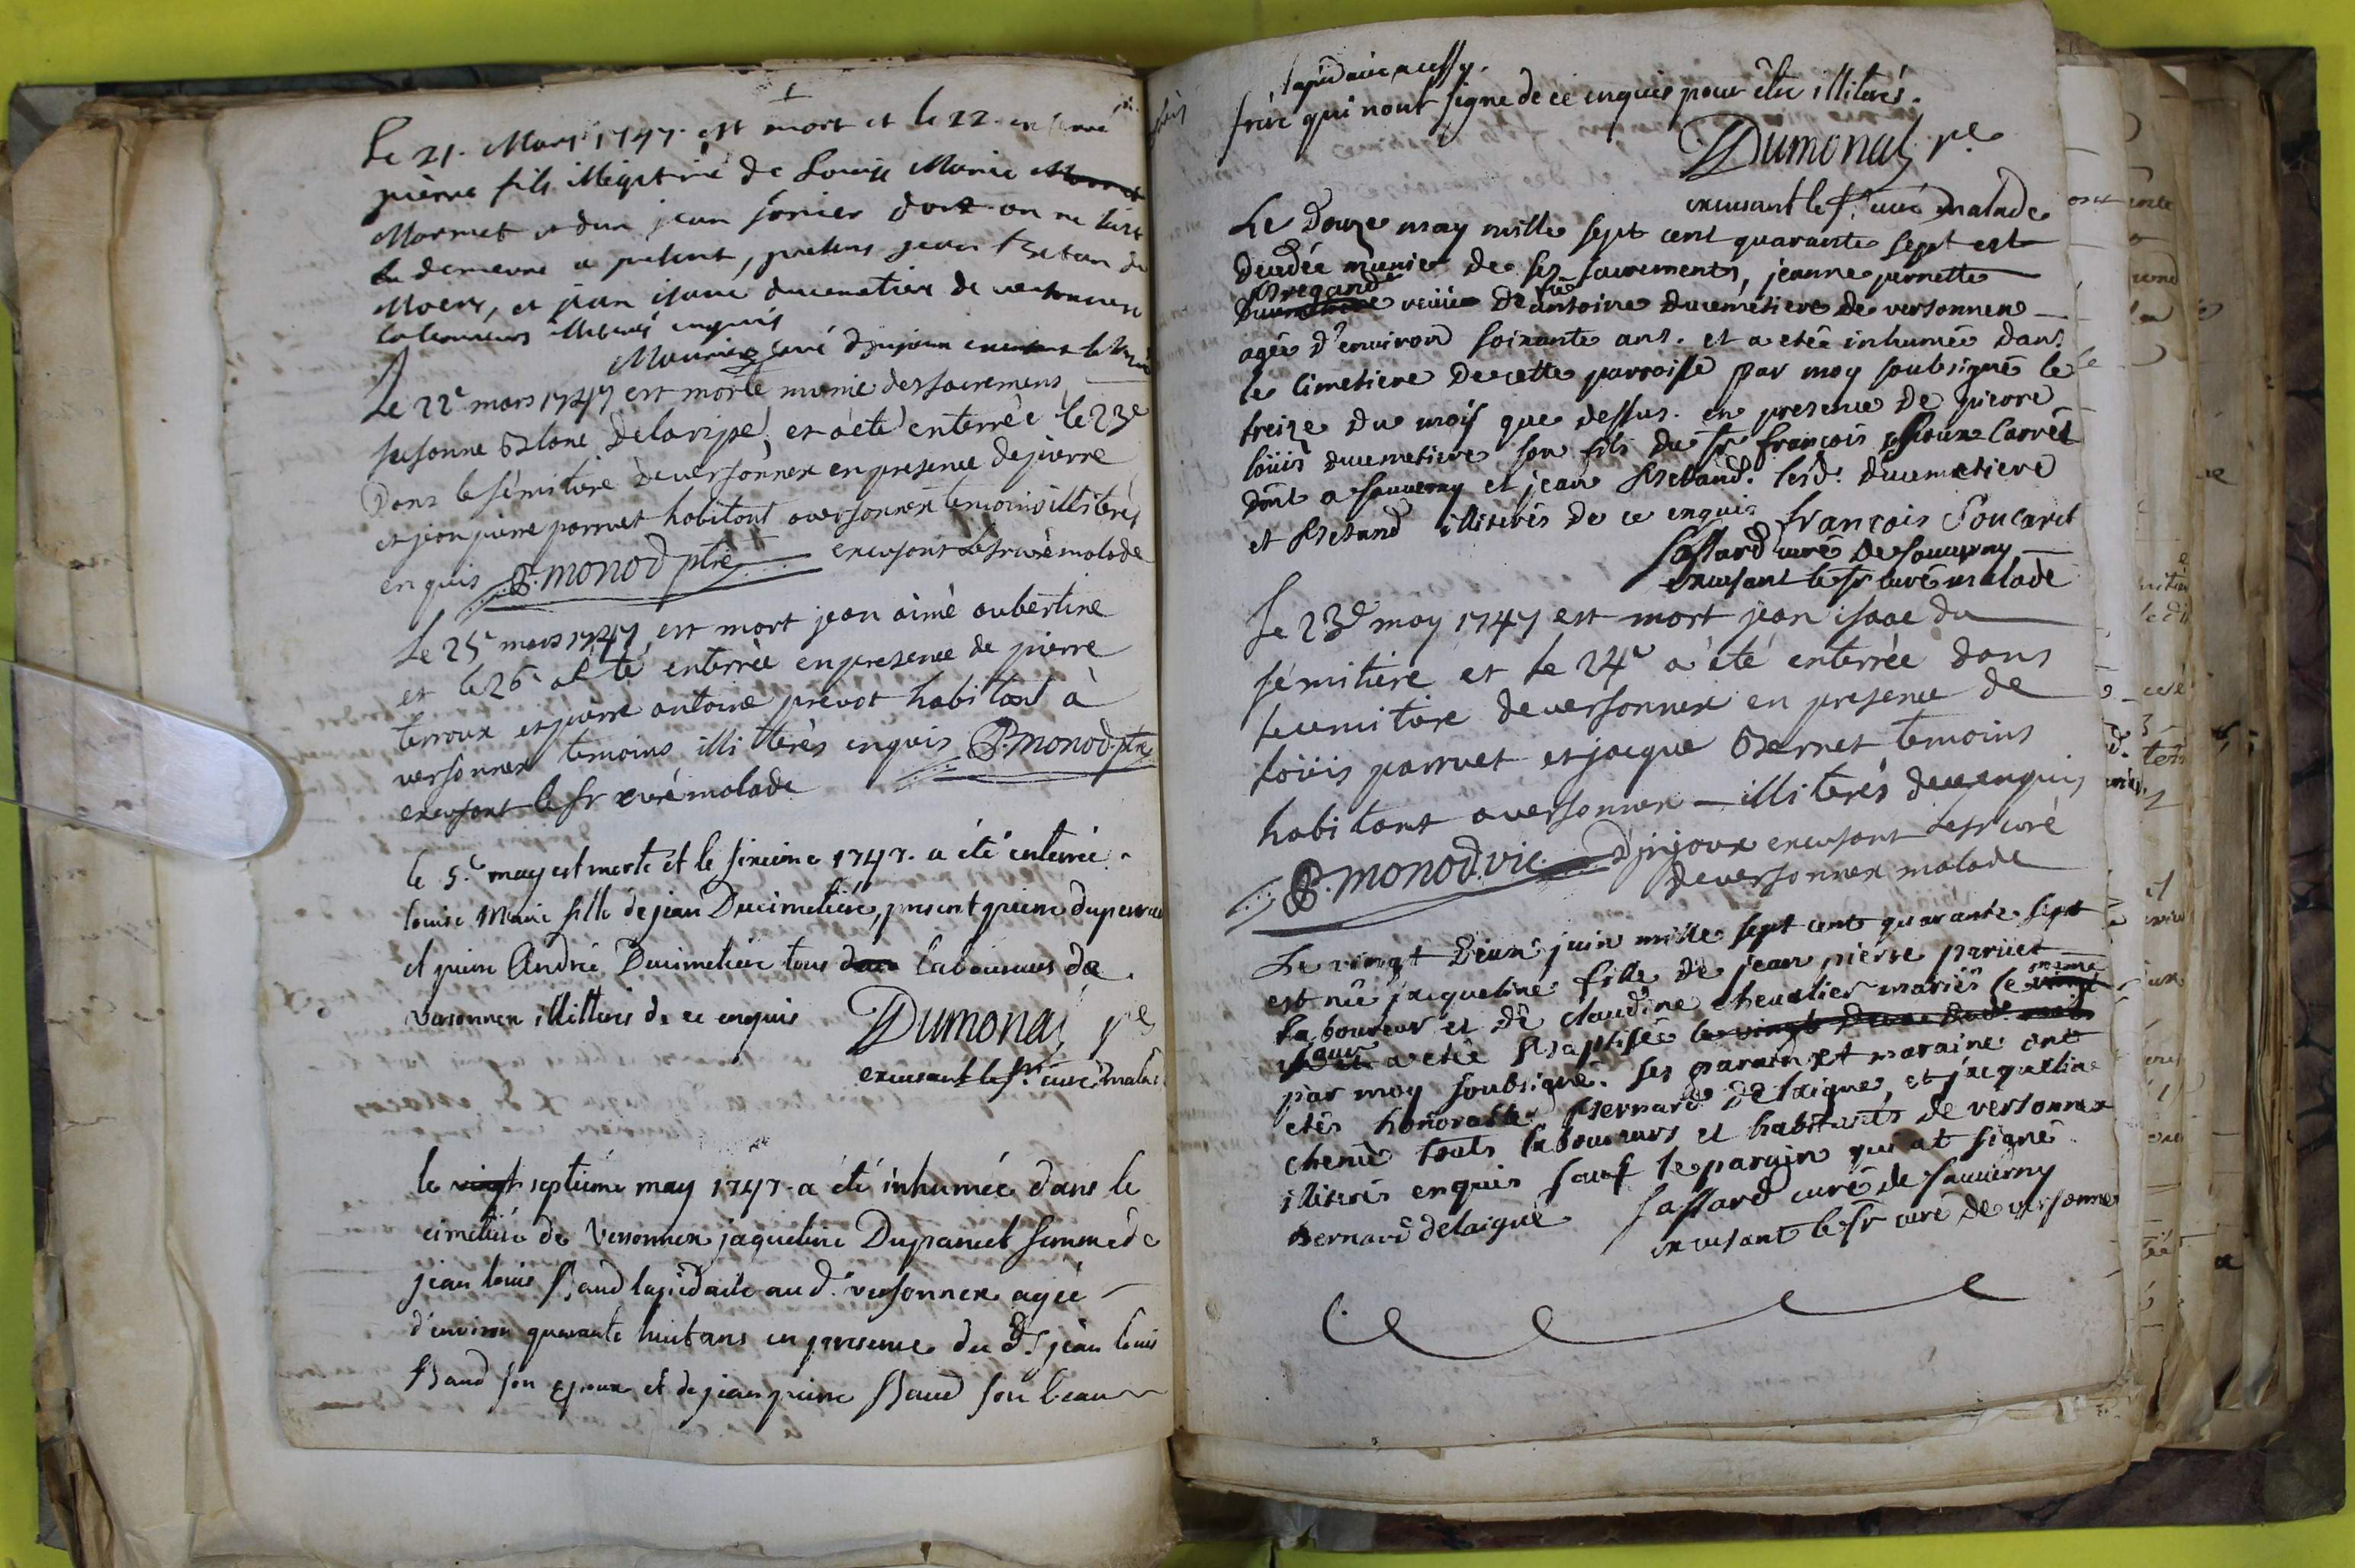 Le 21. Mars 1747. est mort et le 22. enterré
pierre fils illegitime de Louise Marie
Mormet et dun jean fornier dont on ne sait
la demeure a present, presens jean Bretan de
Moens, et jean isaac ducemetiere de versonnex
laboureurs illiterés enquis
Mounier curé dornjoux excusant le Sr curé
Le 22e mars 1747 est morte munie des sacremens
susonne Blanc Delaripe, et a été enterrée le 23e
Dans le sémitiere de versonnex en presence de pierre
et jean pierre parruet habitant a versonnex temoins illiterés
enquis P. monod ptre excusant le sr curé malade
Le 25e mars 1747 est mort jean aimé aubertine
et le 26e a été enterrée en presence de pierre
terroux et pierre antoine prevot habitant à
versonnex temoins illiterés enquis P. monod ptre
excusant le sr curé malade
le 5.e may est morte et le sixieme 1747. a été enterrée
louise Marie fille de jean Ducimetiere, present pierre duperrue
et pierre André Ducimetiere tous laboureurs de
versonnex illitteres de ce enquis Dumonal pe
excusant le sr. curé malade
le vingt septieme may 1747. a été inhumée dans le
cimetiere de Versonnex jaqueline Dupanet femme de
jean louis Baud lapidaire au d. versonnex agée
d'environ quarante huit ans en presence du d. jean louis
Baud son epoux et de jean pierre Baud son beau
lapidaire aussy.
frere qui n'ont signe de ce enquis pour etre illiterés.
Dumonal pe
excusant le sr. curé malade
Le Douze may mille sept cent quarante sept est
Decedée munie de ses sacrements, jeanne pernette
Bregand
veuve de feu antoine ducemetiere de versonnex
agée d'environ soixante ans. et a etée inhumée dans
le Cimetiere De cette parroisse par moy soubsigné le
treize du mois que dessus. en presence de pierre
loüis ducemetiere son fils du sr françois Carret
dont a sauverny et jean Bretand. lesd. ducemetiere
et Bretand illiterés de ce enquis françois Poucaret
Passard curé de sauverny
excusant le sr curé malade
Le 23e may 1747 est mort jean isaac du
sémitiere et le 24e a été enterrée dans
le cemitiere de versonnex en presence de
loüis parruet et jacque Bernet temoins
habitant a versonnex illiterés de ce enquis
P. monod. vic. d'ornjoux excusant le sr curé
de versonnex malade
Le vingt Deux juin mille sept cent quarante sept
est née jacqueline fille de jean pierre parruet
laboureur et de claudine chevalier mariés le meme vingt
jour a etée Baptisée le vingt Deux dud. mois
par moy soubsigné. ses parain et maraine ont
etés honorable Bernard Delaigue, et jacqueline
chenu touts laboureurs et habitants de versonnex
illiterés enquis sauf le parain qui at signé
Bernard delaigue Passard curé de sauverny
excusant le sr curé de versonnex